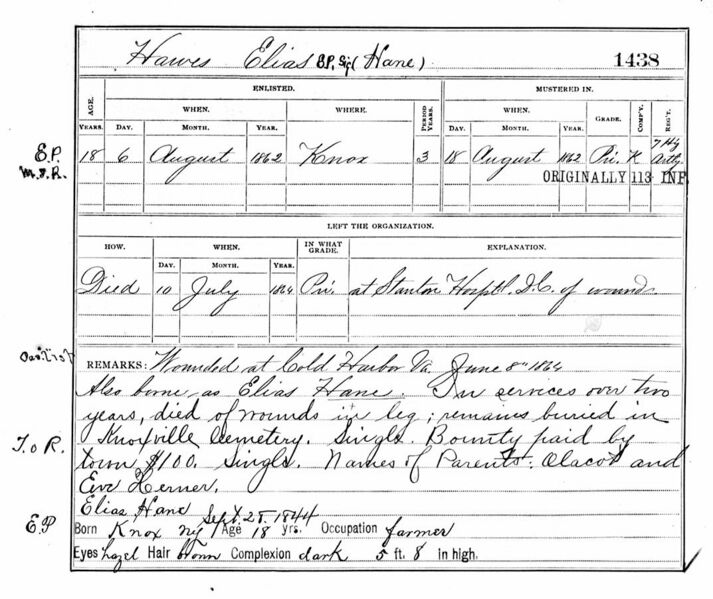 Hawes Elias E.P. Sig( Hane) 1438
ENLISTED. MUSTERED IN.
AGE. WHEN. WHERE. PERIOD YEARS. WHEN. GRADE. COMP'Y. REG'T.
YEARS. DAY. MONTH. YEAR. DAY. MONTH. YEAR.
E.P. 18 6 August 1862 Knox 3 18 August 1862 Pri. K 7 Hy Artly
M.I.R. ORIGINALLY 113 INF.
LEFT THE ORGANIZATION.
HOW. WHEN. IN WHAT GRADE. EXPLANATION.
DAY. MONTH. YEAR.
Died 10 July 1864 Pri. at Stanton Hosptl. D.C. of wounds
REMARKS: Wounded at Cold Harbor Va. June 8" 1864
Also borne as Elias Hane. In services over two
years, died of wounds in leg; remains buried in
T. o R. Knoxville Cemetery. Singl. Bounty paid by
town $100. Singl. Names of Parents: and
Eve Herner.
Elias Hane Sept. 25. 1844
E.P Born Knox NY Age 18 yrs. Occupation farmer
Eyes hazel Hair brown Complexion dark 5 ft. 8 in high.